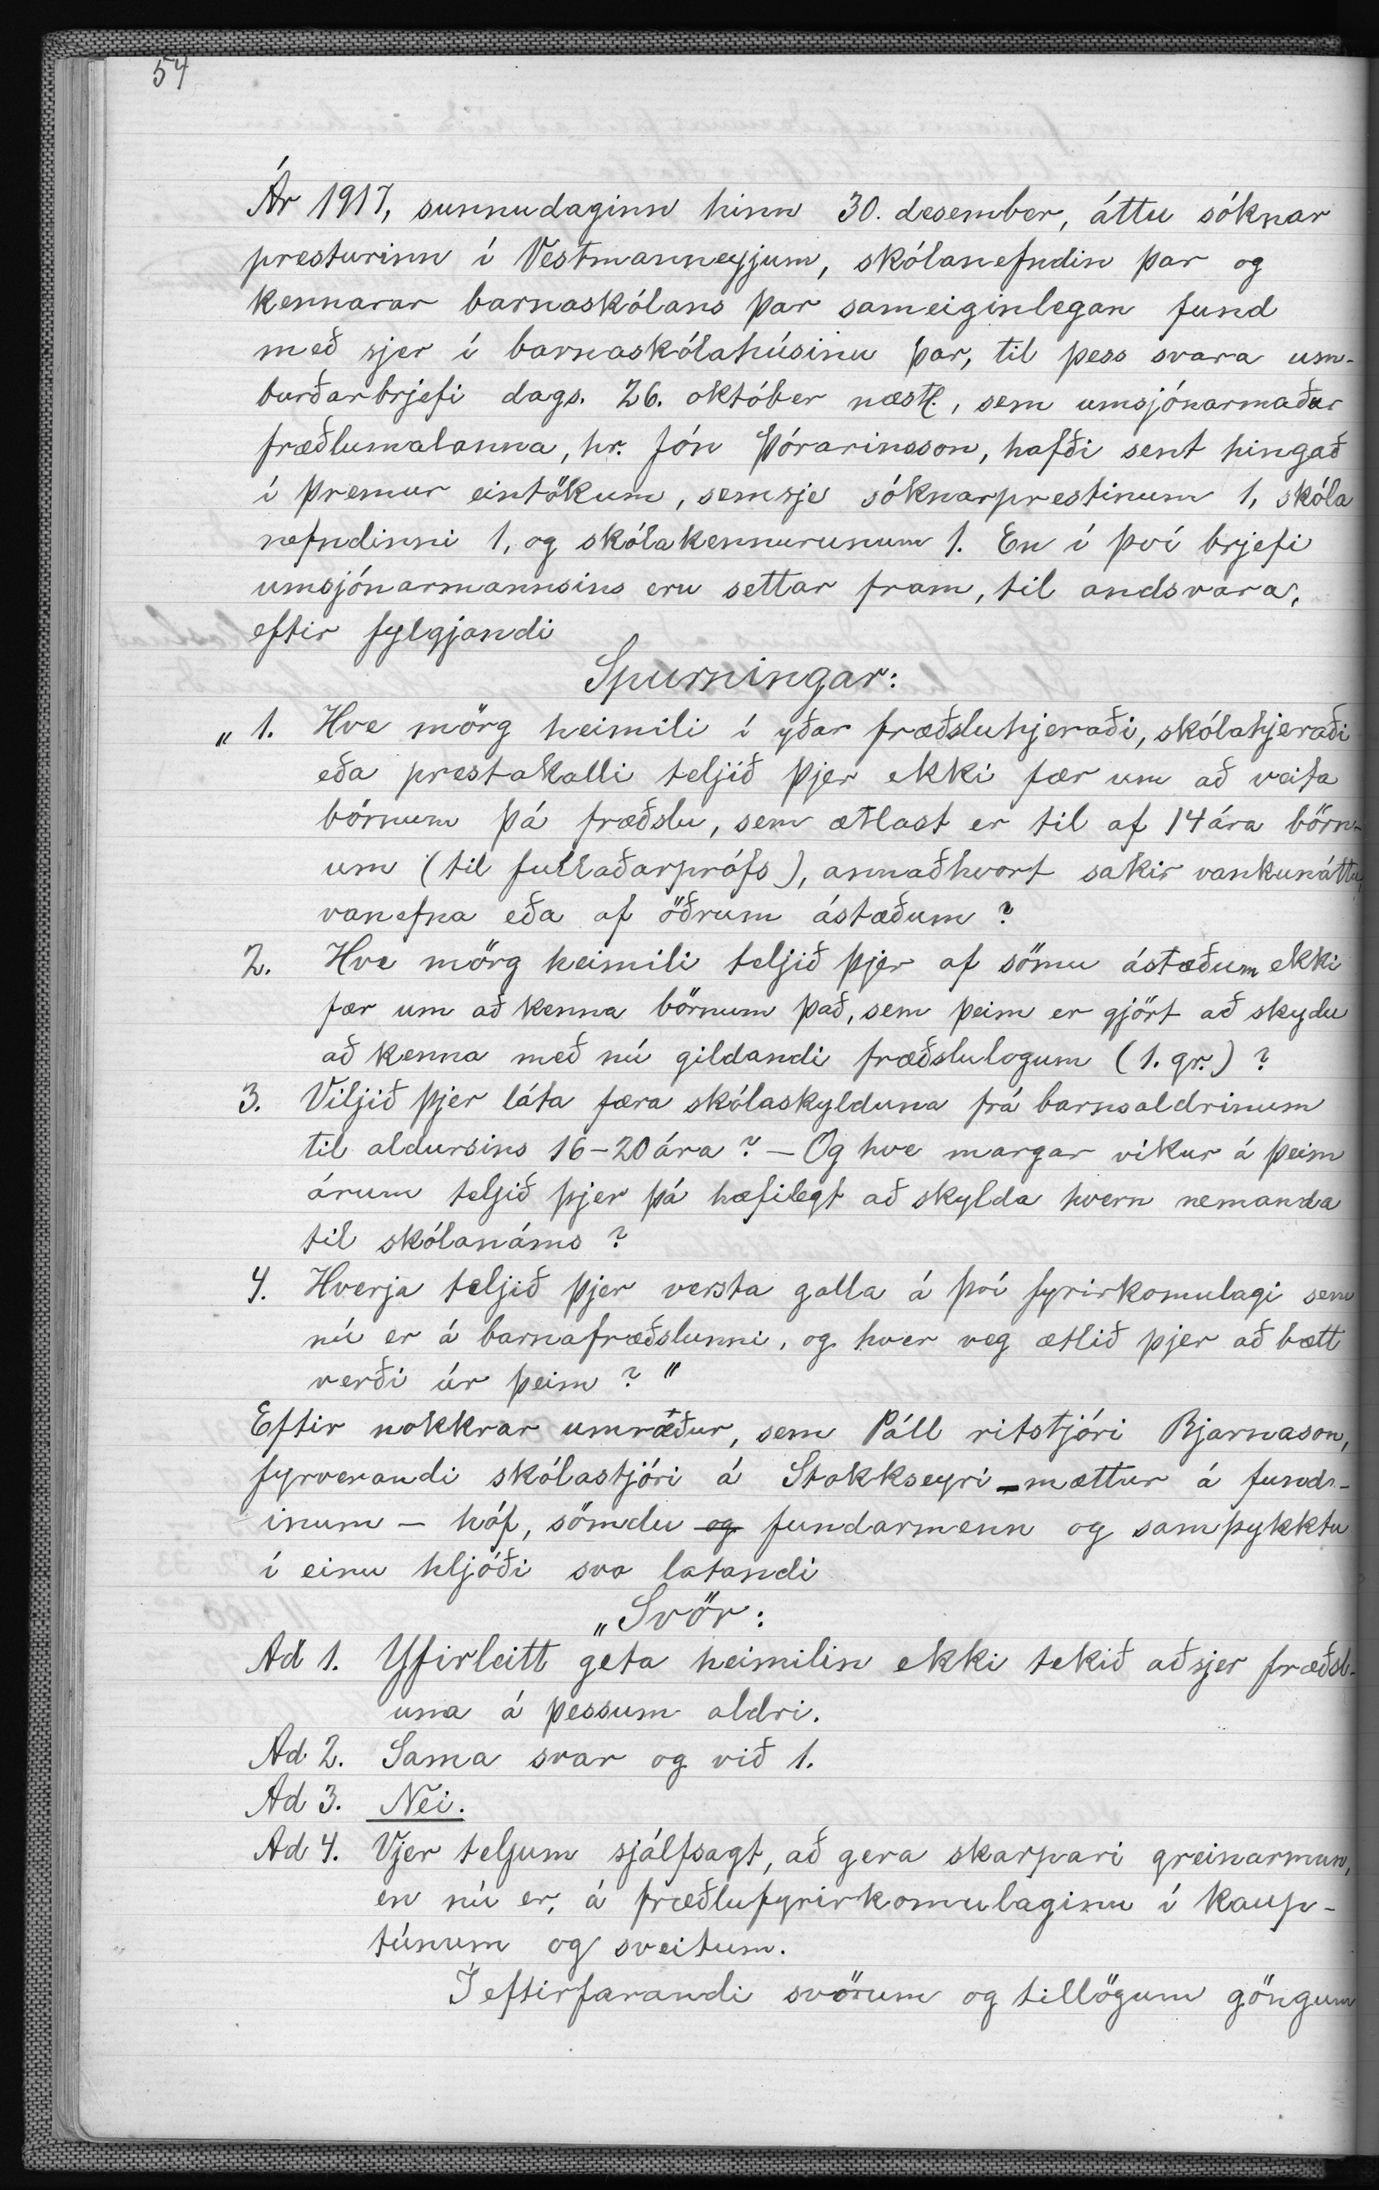 54
Ár 1917, sunnudaginn hinn 30. desember, áttu sóknar
presturinn í Vestmanneyjum, skólanefndin þar og
kennarar barnaskólans þar sameiginlegan fund
með sjer í barnaskólahúsinu þar, til þess svara um-
burðarbrjefi dags. 26. október næstl., sem umsjónarmaður
fræðlumalanna, hr. Jón Þórarinsson, hafði sent hingað
í þremur eintökum, semsje sóknarprestinum 1, skóla
nefndinni 1, og skólakennurunum 1. En í því brjefi
umsjónarmannsins eru settar fram, til andsvara,
eftir fylgjandi
Spurningar:
„1. Hve mörg heimili í yðar fræðsluhjeraði, skólahjeraði
eða prestakalli teljið þjer ekki fær um að veita
börnum þá fræðslu, sem ætlast er til af 14 ára börn-
um (til fullnaðarprófs), annaðhvort sakir vankunáttu,
vanefna eða af öðrum ástæðum?
2. Hve mörg heimili teljið þjer af sömu ástæðum ekki
fær um að kenna börnum það, sem þeim er gjört að skydu
að kenna með nú gildandi fræðslulogum (1. gr.)?
3. Viljið þjer láta færa skólaskylduna frá barnsaldrinum
til aldursins 16-20 ára? - Og hve margar vikur á þeim
árum teljið þjer þá hæfilegt að skylda hvern nemanda
til skólanáms?
4. Hverja teljið þjer versta galla á því fyrirkomulagi sem
nú er á barnafræðslunni, og hver veg ætlið þjer að bætt
verði úr þeim?"
Eftir nokkrar umræður, sem Páll ritstjóri Bjarnason,
fyrverandi skólastjóri á Stokkseyri - mættur á fund-
inum - hóf, sömdu og fundarmenn og samþykktu
í einu hljóði svo latandi
„Svör:
Ad 1. Yfirleitt geta heimilin ekki tekið að sjer fræðsl-
una á þessum aldri.
Ad 2. Sama svar og við 1.
Ad 3. Nei.
Ad 4. Vjer teljum sjálfsagt, að gera skarpari greinarmun,
en nú er, á fræðlufyrirkomulaginu í kaup-
túnum og sveitum.
Í eftirfarandi svörum og tillögum göngum